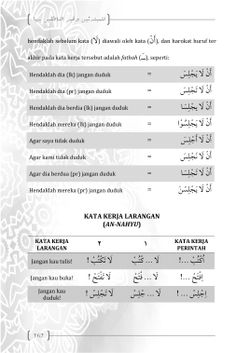 hendaklah sebelum kata (لَا) diawali oleh kata (أَنْ), dan harakat huruf ter
akhir pada kata kerja tersebut adalah fathah (ـَ), seperti:
Hendaklah dia (lk) jangan duduk = أَنْ لَا يَجْلِسَ
Hendaklah dia (pr) jangan duduk = أَنْ لَا تَجْلِسَ
Hendaklah dia berdua (lk) jangan duduk = أَنْ لَا يَجْلِسَا
Hendaklah mereka (lk) jangan duduk = أَنْ لَا يَجْلِسُوْا
Agar saya tidak duduk = أَنْ لَا أَجْلِسَ
Agar kami tidak duduk = أَنْ لَا نَجْلِسَ
Agar dia berdua (pr) jangan duduk = أَنْ لَا تَجْلِسَا
Hendaklah mereka (pr) jangan duduk = أَنْ لَا يَجْلِسْنَ
KATA KERJA LARANGAN
(AN-NAHYU)
KATA KERJA LARANGAN ٢ ١ KATA KERJA PERINTAH
Jangan kau tulis! لَا تَكْتُبْ ! لَا ... كْتُبْ أُكْتُبْ ...!
Jangan kau buka! لَا تَفْتَحْ ! لَا ... فْتَحْ إِفْتَحْ ...!
Jangan kau duduk! لَا تَجْلِسْ ! لَا ... جْلِسْ إِجْلِسْ ...!
162